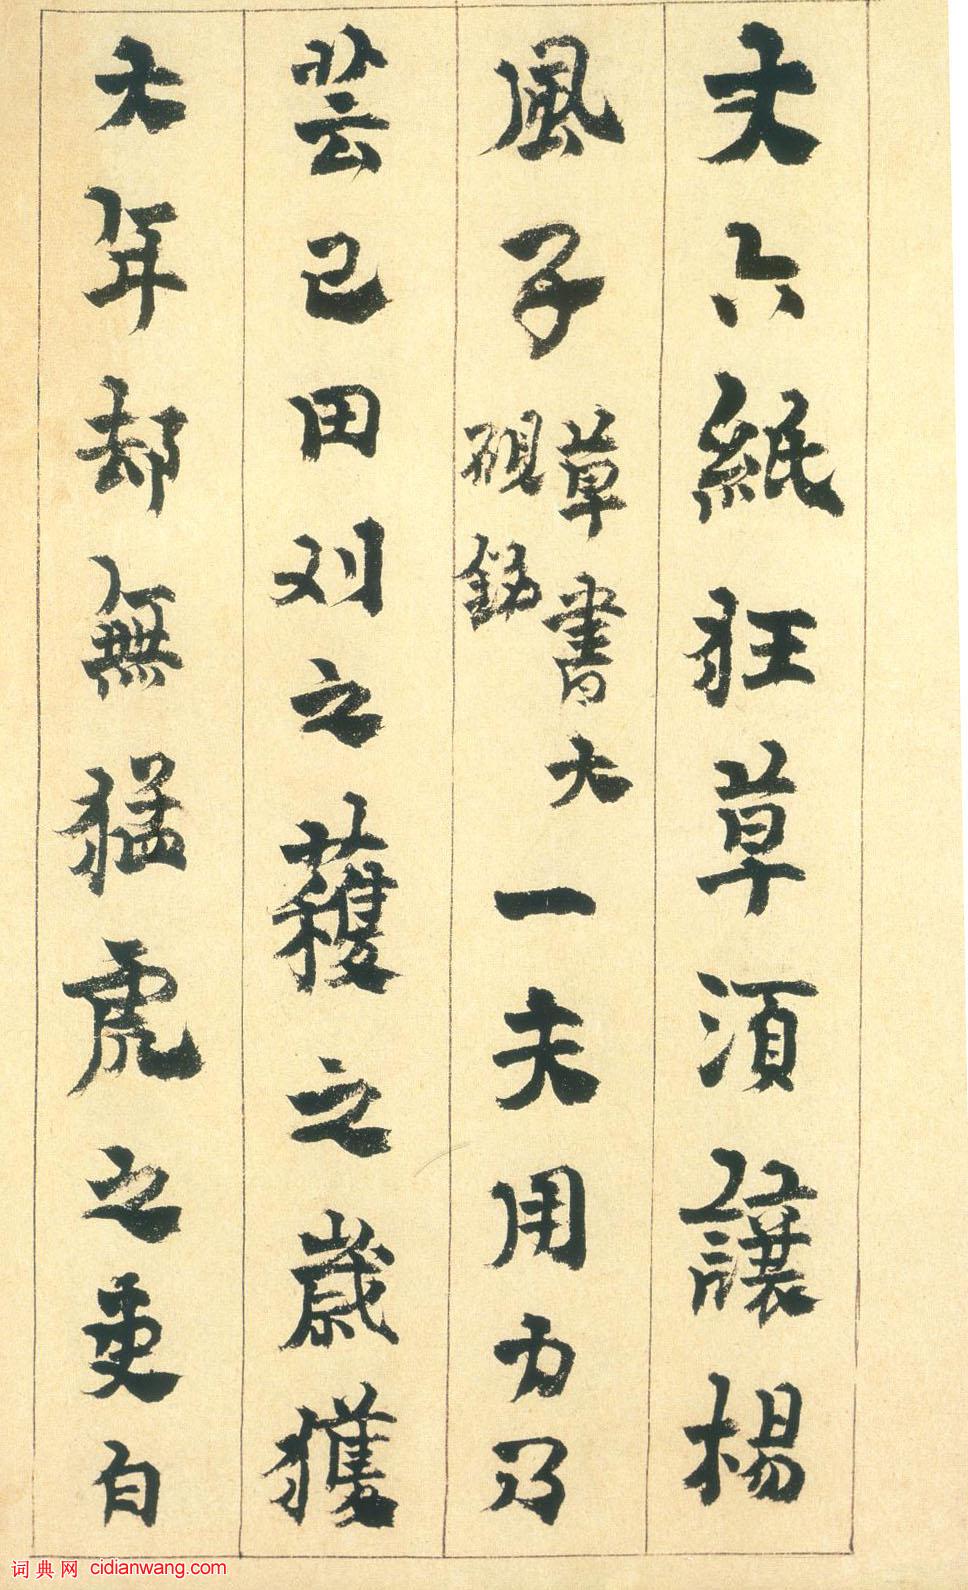 丈六紙狂草須讓楊
風子
草書大
硯銘
一夫用力乃
芸己田刈之穫之歲獲
大年却無猛虎之吏白
词典网 cidianwang.com